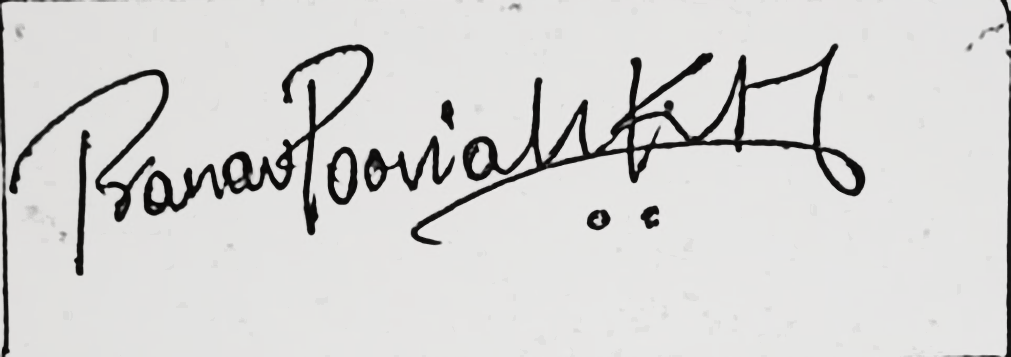 Pranav Pooviah K M